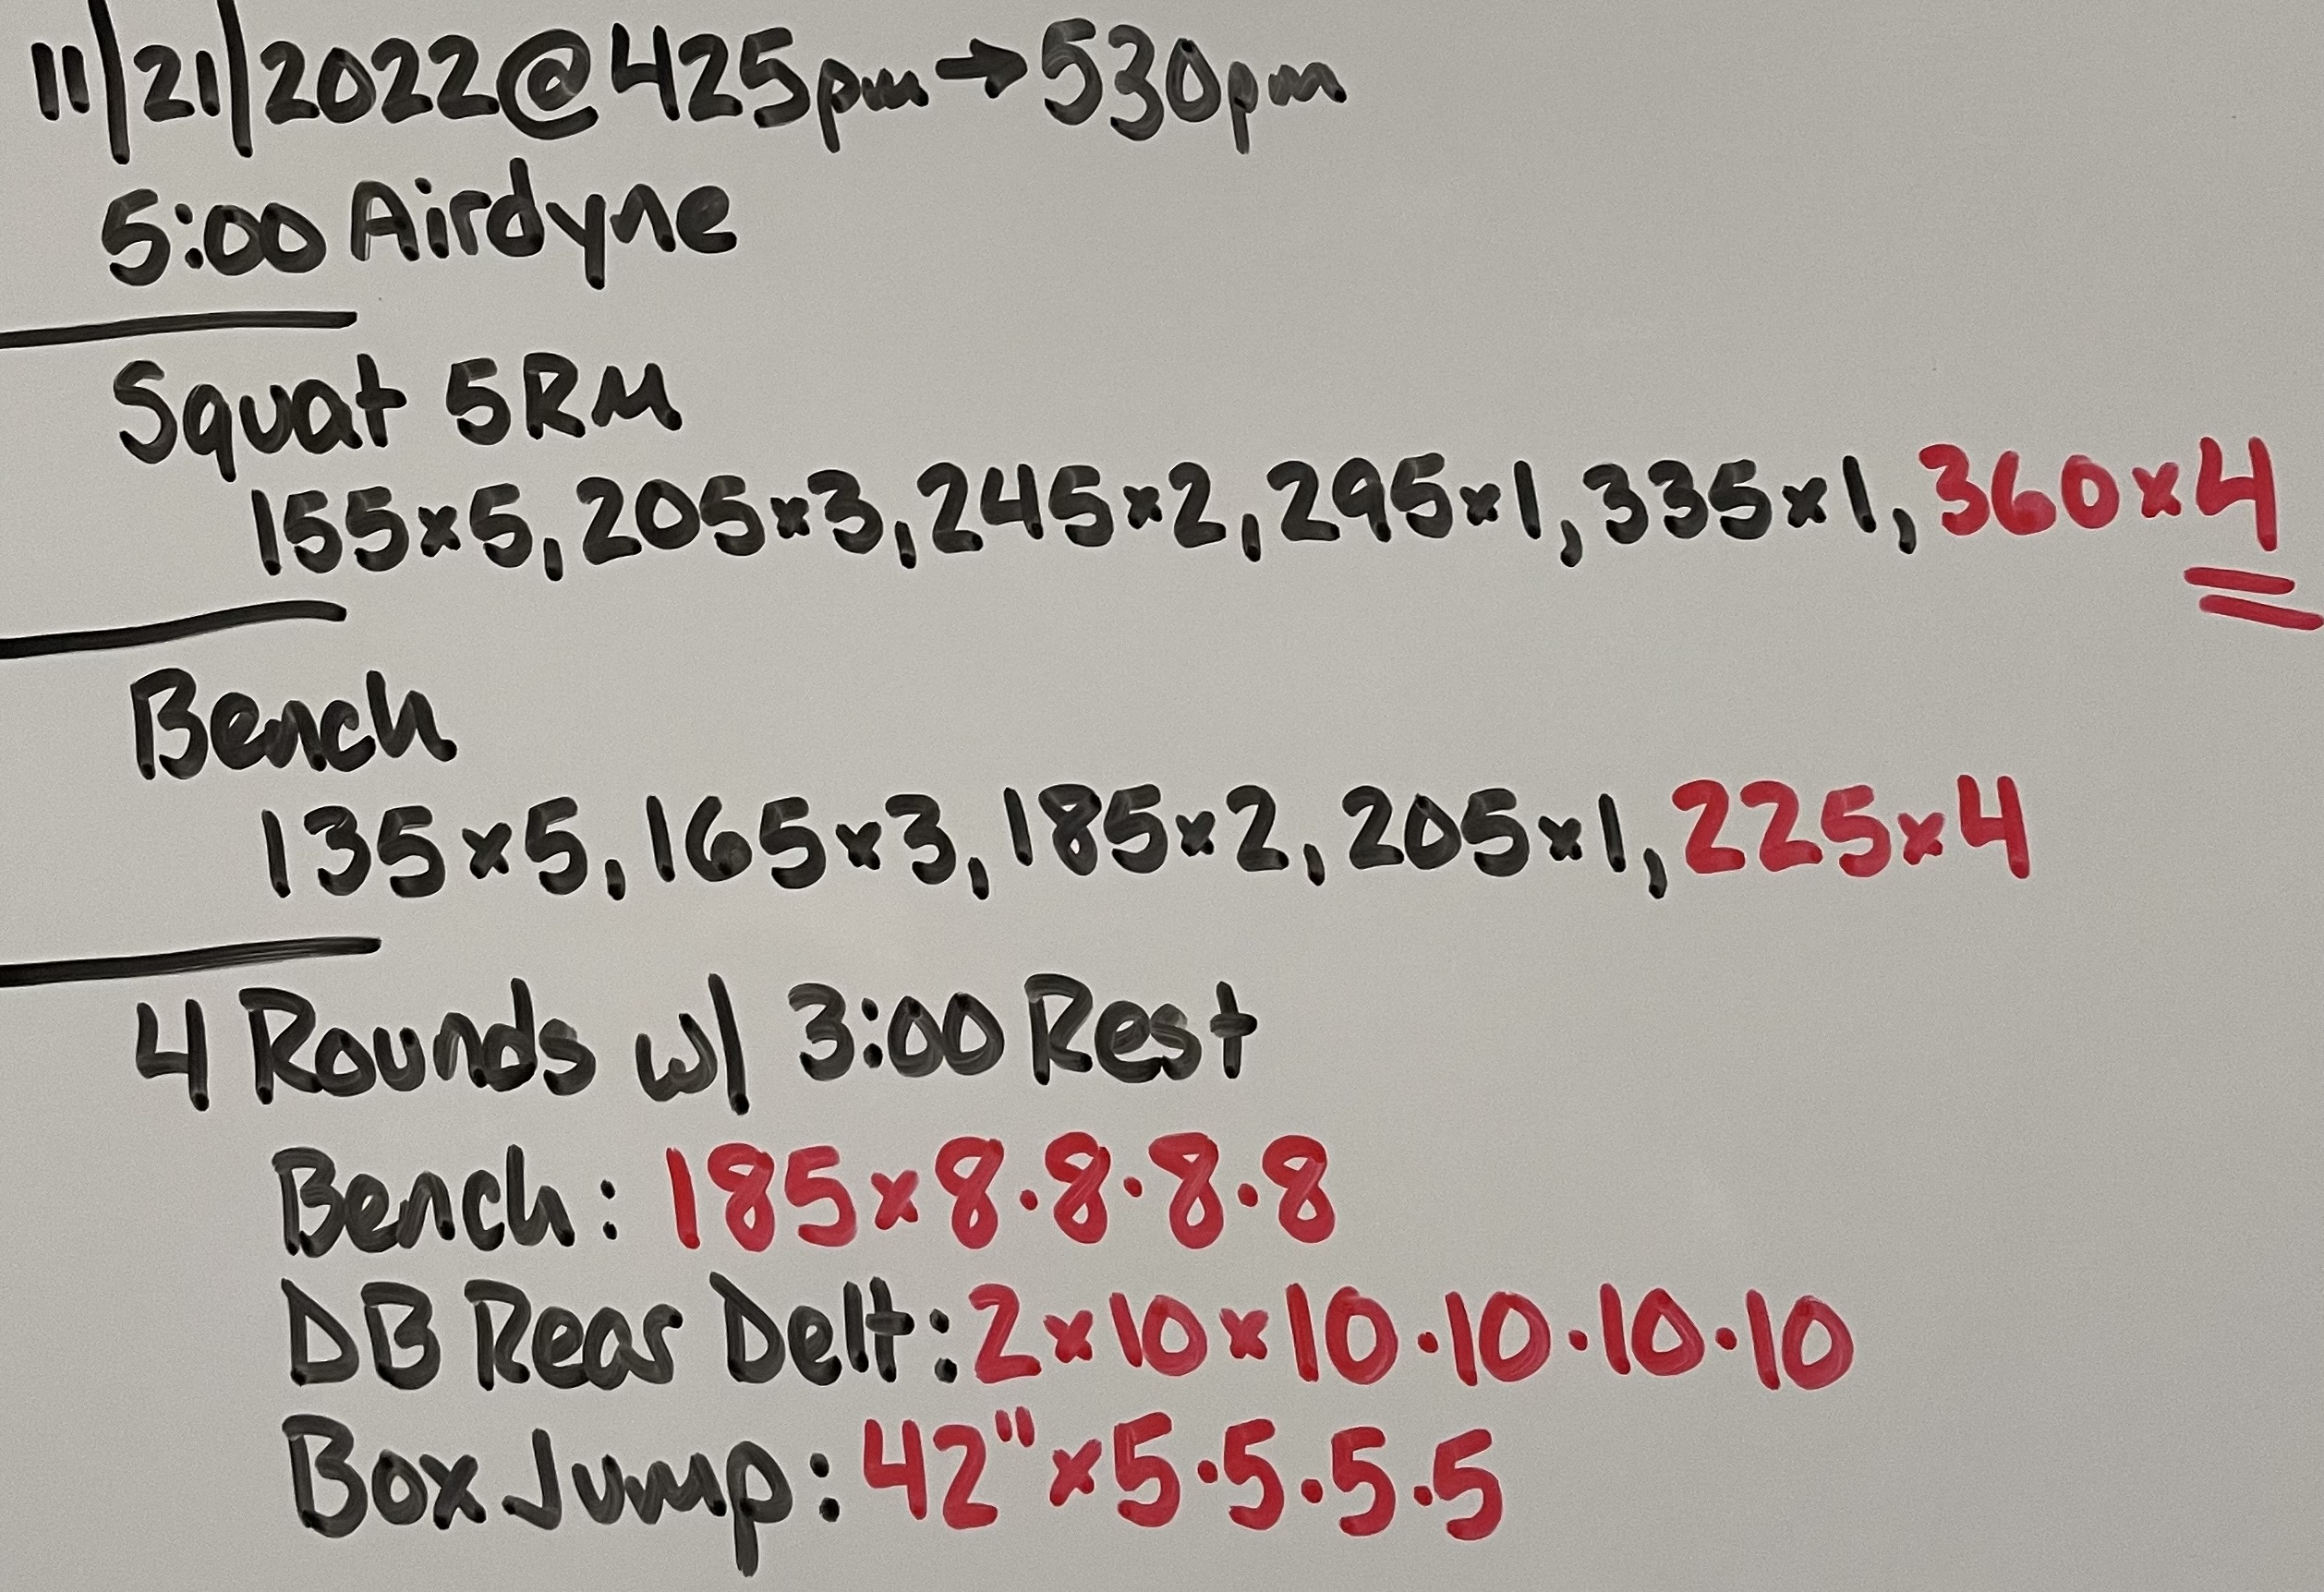 11/21/2022@425pm→530pm
5:00 Airdyne
Squat 5RM
155x5, 205x3, 245x2, 295x1, 335x1, 360x4
Bench
135x5, 165x3, 185x2, 205x1, 225x4
4 Rounds w/ 3:00 Rest
Bench: 185x8·8·8·8
DB Rear Delt: 2x10x10·10·10·10
Box Jump: 42"x5·5·5·5